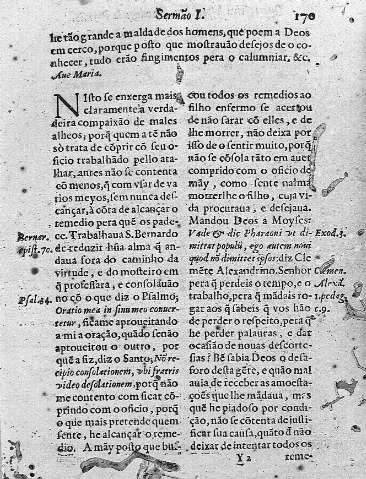 Sermão I. 170
he tão grande a maldade dos homens, que poem a Deos
em cerco, porque posto que mostrauão desejos de o co-
nhecer, tudo erão fingimentos pera o calumniar. &c.
Aue Maria.
NIsto se enxerga mais
claramente a verda-
deira compaixão de males
alheos; porq̃ quem a tẽ não
só trata de cõprir cõ seu o-
ficio trabalhãdo pello ata-
lhar, antes não se contenta
cõ menos, q̃ com vsar de va-
rios meyos, sem nunca des-
cançar, à cõta de alcançar o
remedio pera quẽ os pade-
ce. Trabalhaua S. Bernardo
de reduzir hũa alma q̃ an-
daua fora do caminho da
virtude, e do mosteiro em
q̃ professàra, e consolàuão
no cõ o que diz o Psalmo;
Oratio mea in sinu meo conuer-
tetur, ficame aproueitando
a mi a oração, quãdo senão
aproueitou o outro, por
quẽ a fiz, diz o Santo; Nõ re-
cipio consolationem, vbi fratris
video desolationem, porq̃ não
me contento com ficar cõ-
prindo com o oficio, porq̃
o que mais pretende quem
sente, he alcançar o reme-
dio. A mãy posto que bus-
Bernar.
epist. 70.
Psal. 34.
cou todos os remedios ao
filho enfermo se acertou
de não sarar cõ elles, e de
lhe morrer, não deixa por
isso de o sentir muito, porq̃
não se cõsola tãto em auer
comprido com o oficio de
mãy, como sente nalma
morrerlhe o filho, cuja vida
procuraua, e desejaua.
Mandou Deos a Moyses:
Vade & dic Pharaoni vt di-
mittat populũ, ego autem noui
quod nõ dimittet ipsos: diz Cle-
mẽte Alexandrino. Senhor
pera q̃ perdeis o tempo, e o
trabalho, pera q̃ mãdais ro-
gar aos q̃ sabeis q̃ vos hão
de perder o respeito, pera q̃
he perder palauras, e dar
ocasião de nouas descorte-
sias? Bẽ sabia Deos o desa-
foro desta gẽte, e quão mal
auia de receber as amoesta-
ções que lhe mãdaua, mas
quẽ he piadoso por condi-
ção, não se cõtenta de justi-
ficar sua causa, quãto à não
deixar de intentar todos os
Exod. 3.
Clemen.
Alexd.
1. pedag.
c. 9.
Y 2 reme-